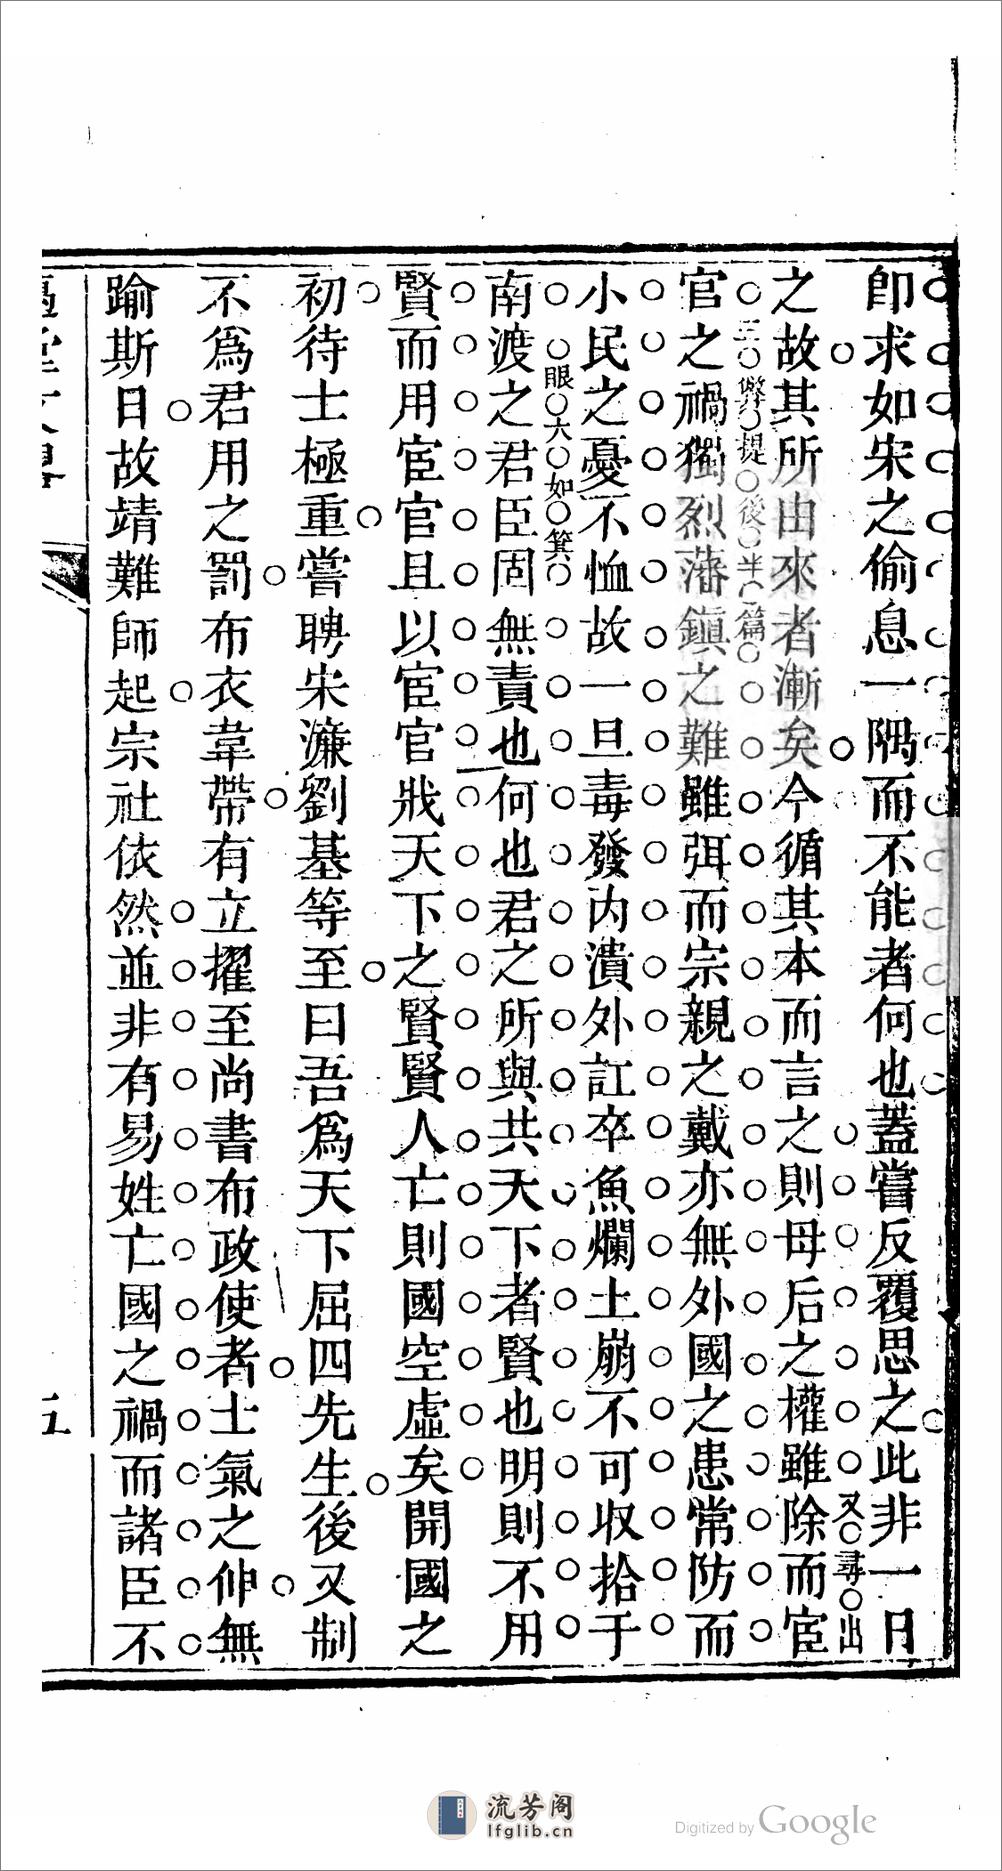 卽求如宋之偷息一隅而不能者何也蓋嘗反覆思之此非一日
又尋出
之故其所由來者漸矣今循其本而言之則母后之權雖除而宦
三弊提後半篇
官之禍獨烈藩鎮之難雖弭而宗親之戴亦無外國之患常防而
小民之憂不恤故一旦毒發內潰外訌卒魚爛土崩不可收拾于
眼六如箕
南渡之君臣固無責也何也君之所與共天下者賢也明則不用
賢而用宦官且以宦官戕天下之賢賢人亡則國空虛矣開國之
初待士極重嘗聘宋濂劉基等至曰吾爲天下屈四先生後又制
不爲君用之罰布衣韋帶有立擢至尚書布政使者士氣之伸無
踰斯日故靖難師起宗社依然並非有易姓亡國之禍而諸臣不
堂文
五
流芳阁
lfglib.cn
Digitized by Google